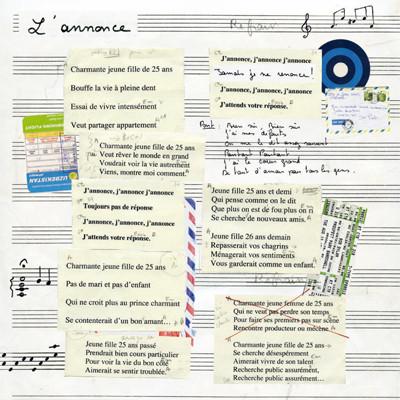 L'annonce
Charmante jeune fille de 25 ans
Bouffe la vie à pleine dent
Essai de vivre intensément
Veut partager appartement
Charmante jeune fille de 25 ans
Veut rêver le monde en grand
Voudrait voir la vie autrement
Viens, montre moi comment.
J'annonce, j'annonce, j'annonce
Toujours pas de réponse
J'annonce, j'annonce, j'annonce
J'attends votre réponse.
Charmante jeune fille de 25 ans
Pas de mari et pas d'enfant
Qui ne croit plus au prince charmant
Se contenterait d'un bon amant…
Jeune fille de 25 ans passé
Prendrait bien cours particulier
Pour voir la vie du bon côté
Aimerait se sentir troublée.
Refrain
J'annonce, j'annonce, j'annonce
Jamais je ne renonce !
J'annonce, j'annonce, j'annonce
J'attends votre réponse.
Pont : Bien sûr, Bien sûr
j'ai mes défauts
On me le dit assez souvent
Pourtant Pourtant
j'ai le cœur grand
UZBEKISTAN
Jeune fille 25 ans et demi
Qui pense comme on le dit
Que plus on est de fou plus on ri
Se cherche de nouveaux amis.
Jeune fille 26 ans demain
Repasserait vos chagrins
Ménagerait vos sentiments
Vous garderait comme un enfant.
Refrain
Charmante jeune femme de 25 ans
Qui ne veut pas perdre son temps
Pour faire ses premiers pas sur scène
Rencontre producteur ou mécène.
Charmante jeune fille de 25 ans
Se cherche désespérément
Aimerait vivre de son talent
Recherche public assurément,
Recherche public assurément…